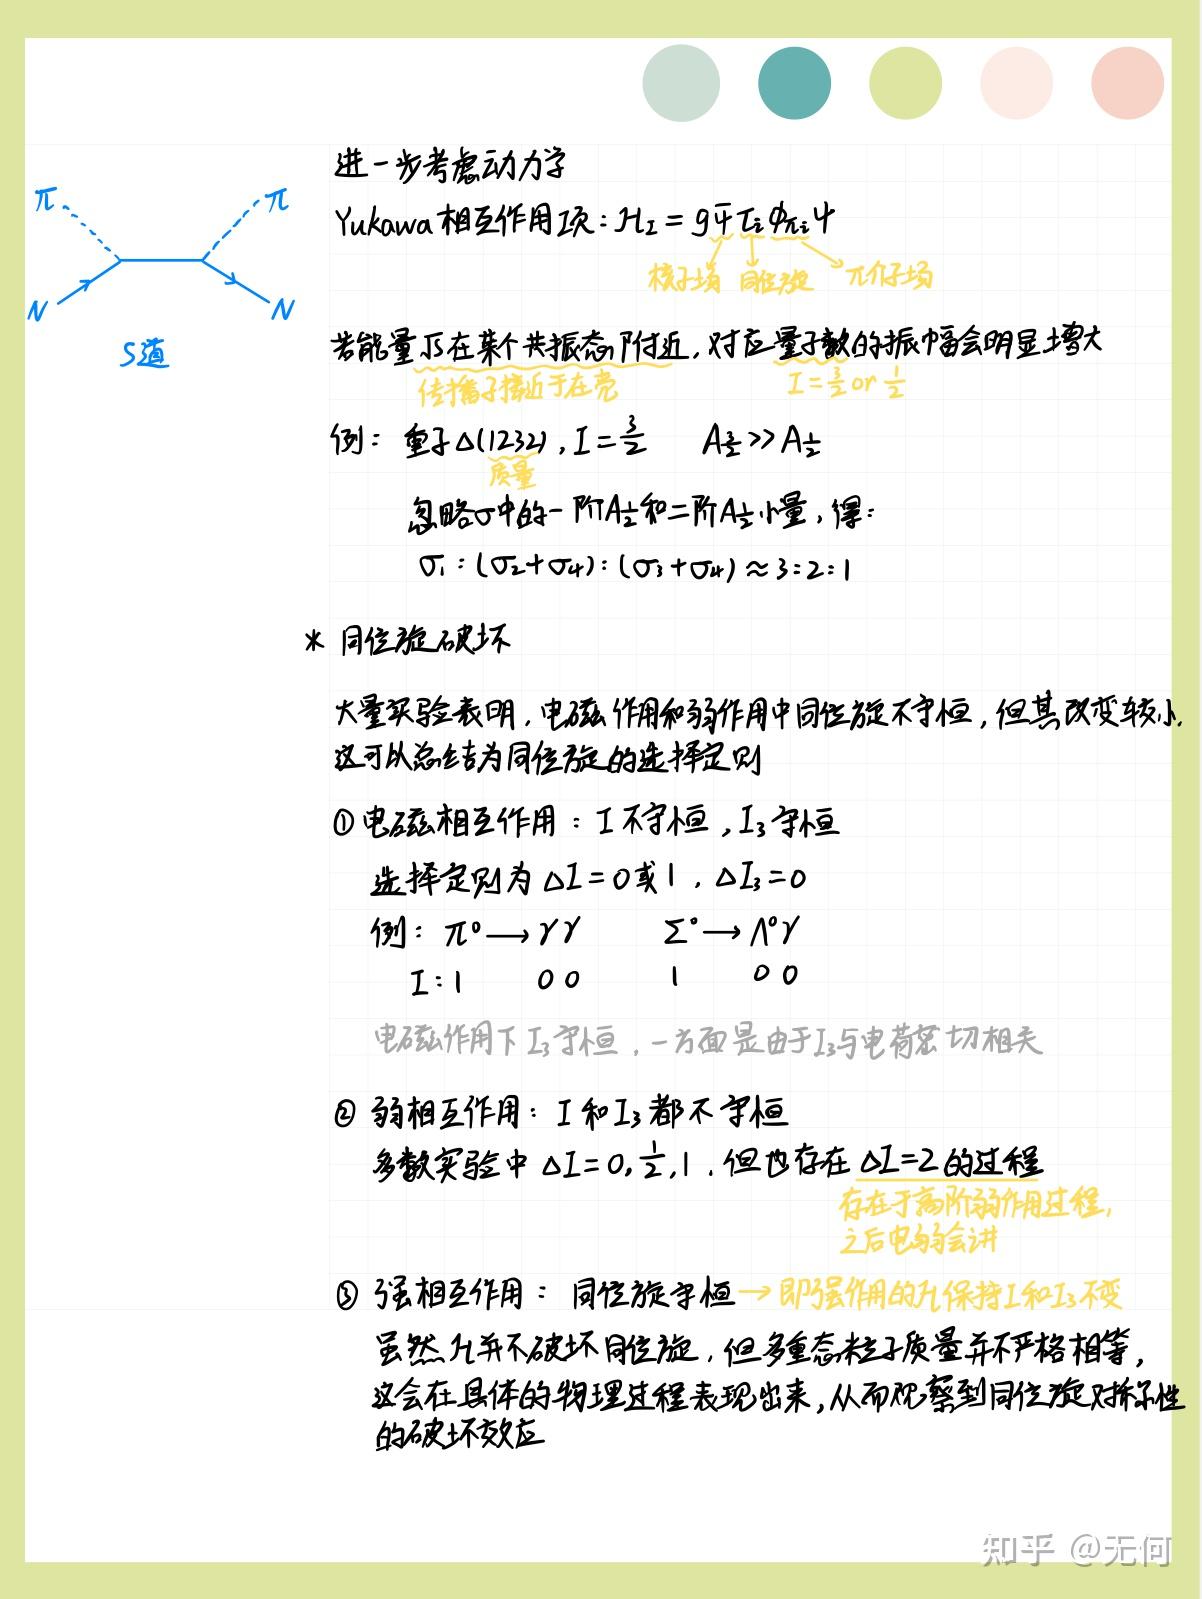 进一步考虑动力学
π π
Yukawa相互作用项：ℋ_I = g ψ̄ τ_i φ_πi ψ
核子场 同位旋 π介子场
N N
S道
若能量√s在某个共振态附近，对应量子数的振幅会明显增大
传播子接近于在壳 I = 3/2 or 1/2
例：重子Δ(1232)，I = 3/2 A_3/2 >> A_1/2
质量
忽略σ中的一阶A_1/2和二阶A_1/2小量，得：
σ₁：(σ₂+σ₄)：(σ₃+σ₄) ≈ 3：2：1
* 同位旋破坏
大量实验表明，电磁作用和弱作用中同位旋不守恒，但其改变较小，
这可以总结为同位旋的选择定则
① 电磁相互作用：I不守恒，I₃守恒
选择定则为 ΔI = 0或1，ΔI₃ = 0
例：π⁰ → γγ Σ⁰ → Λ⁰γ
I：1 0 0 1 0 0
电磁作用下I₃守恒，一方面是由于I₃与电荷密切相关
② 弱相互作用：I和I₃都不守恒
多数实验中 ΔI = 0, 1/2, 1，但也存在 ΔI=2的过程
存在于高阶弱作用过程，
之后电弱会讲
③ 强相互作用：同位旋守恒 → 即强作用的ℋ保持I和I₃不变
虽然ℋ并不破坏同位旋，但多重态粒子质量并不严格相等，
这会在具体的物理过程表现出来，从而观察到同位旋对称性
的破坏效应
知乎 @无何